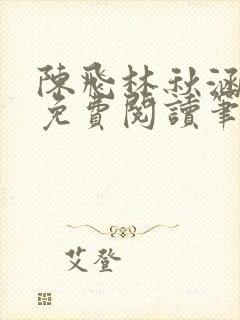 陳飛林秋涵
免費閱讀筆
艾登